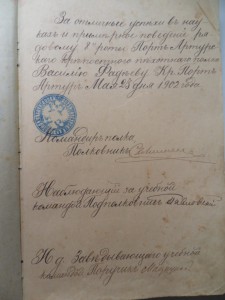 За отличные успехи в нау
ках и примѣрное поведеніе ря
довому роты Портъ Артур
скаго крѣпостного пѣхотнаго полка
Василію Кр. Портъ
Артуръ Мая 23 дня 1902 года
Командиръ полка,
Полковникъ
Наблюдающій за учебной
командой Подполковникъ
И. д. Завѣдывающаго учебной
командой Поручикъ